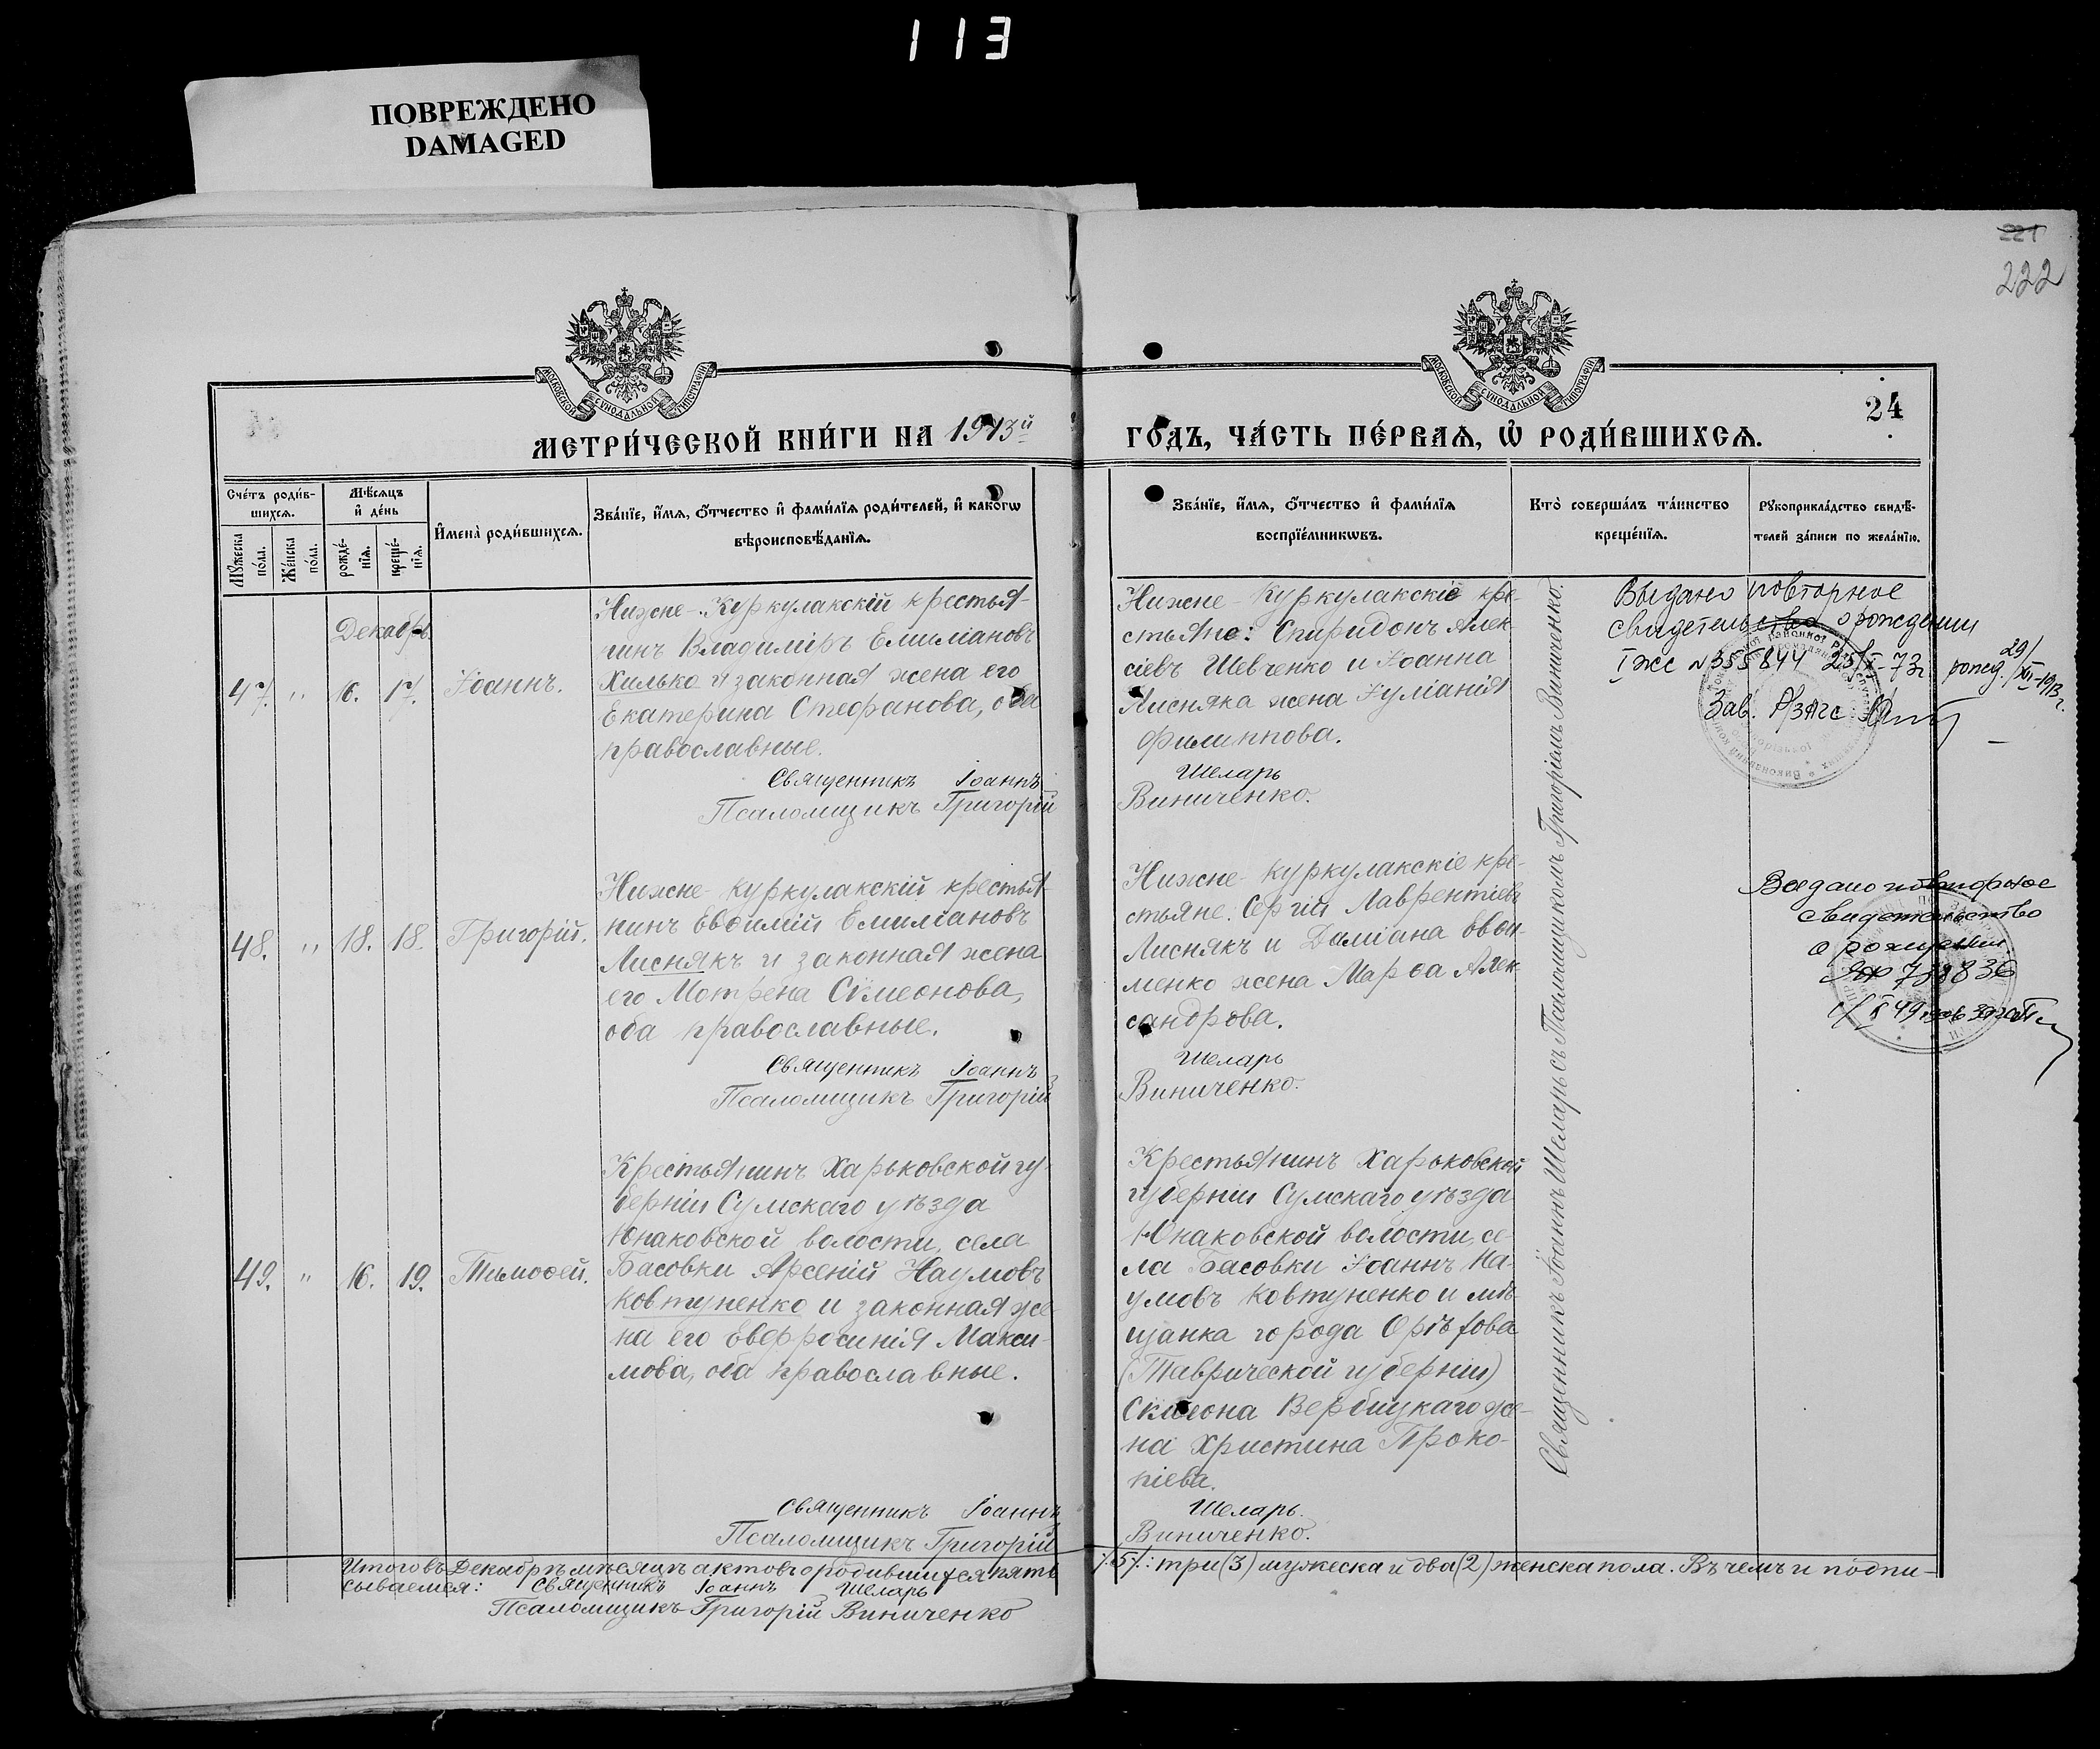 113
ПОВРЕЖДЕНО
DAMAGED
221
222
МОСКОВСКОЙ СѴНОДАЛЬНОЙ ТИПОГРАФІИ
МОСКОВСКОЙ СѴНОДАЛЬНОЙ ТИПОГРАФІИ
24
МЕТРИ́ЧЕСКОЙ КНИ́ГИ НА 1913й
ГО́ДЪ, ЧА́СТЬ ПЕ́РВАѦ, Ѡ҆ РОДИ́ВШИХСѦ.
Сче́тъ роди́в-
шихсѧ.
Мѣ́сѧцъ
и҆ де́нь
Мꙋ́жеска
по́ла.
Же́нска
по́ла.
рожде́-
нїѧ.
креще́-
нїѧ.
И҆мена̀ роди́вшихсѧ.
Зва́нїе, и҆́мѧ, ѻ҆́тчество и҆ фами́лїѧ роди́телей, и҆ како́гѡ
вѣроисповѣ́данїѧ.
Зва́нїе, и҆́мѧ, ѻ҆́тчество и҆ фами́лїѧ
воспрїе́мникѡвъ.
Кто̀ соверша́лъ та́инство
креще́нїѧ.
Рꙋкоприкла́дство свидѣ́-
телей за́писи по жела́нїю.
Декабрь
47. " 16. 17. Іоаннъ.
Нижне-Куркулакскій крестья-
нинъ Владиміръ Емиліановъ
Хилько и законная жена его
Екатерина Стефанова, оба
православные.
Священникъ Іоаннъ
Псаломщикъ Григорій
Нижне-Куркулакскіе кре-
стьяне: Спиридонъ Алек-
сіевъ Шевченко и Іоанна
Лисняка жена Іуліанія
Филиппова.
Шеларь
Виниченко.
Выдано повторное
свидетельство о рождении
I жс №355844 25/X-73г рожд. 29/XII-1913г.
Зав. Р/загс
48. " 18. 18. Григорій.
Нижне-Куркулакскій крестья-
нинъ Евѳимій Емиліановъ
Лиснякъ и законная жена
его Мотрена Сімеонова,
оба православные.
Священникъ Іоаннъ
Псаломщикъ Григорій
Нижне-Куркулакскіе кре-
стьяне: Сергій Лаврентіевъ
Лиснякъ и Даміана Овси-
менко жена Марѳа Алек-
сандрова.
Шеларь
Виниченко.
Выдано повторное
свидетельство
о рождении
49. " 16. 19. Тимоѳей.
Крестьянинъ Харьковской гу-
берніи Сумскаго уѣзда
Юнаковской волости, села
Басовки Арсеній Наумовъ
Ковтуненко и законная же-
на его Евфросинія Макси-
мова, оба православные.
Священникъ Іоаннъ
Псаломщикъ Григорій
Крестьянинъ Харьковской
губерніи Сумскаго уѣзда
Юнаковской волости, се-
ла Басовки Іоаннъ На-
умовъ Ковтуненко и мѣ-
щанка города Орѣхова
(Таврической губерніи)
Сімеона Вербицкаго же-
на Христина Проко-
піева.
Шеларь.
Виниченко.
Священникъ Іоаннъ Шеларь съ Псаломщикомъ Григоріемъ Виниченко.
Итого въ Декабрѣ мѣсяцѣ актовъ о родившихся пять /:5/: три (3) мужеска и два (2) женска пола. Въ чемъ и подпи-
сываемся: Священникъ Іоаннъ Шеларь
Псаломщикъ Григорій Виниченко